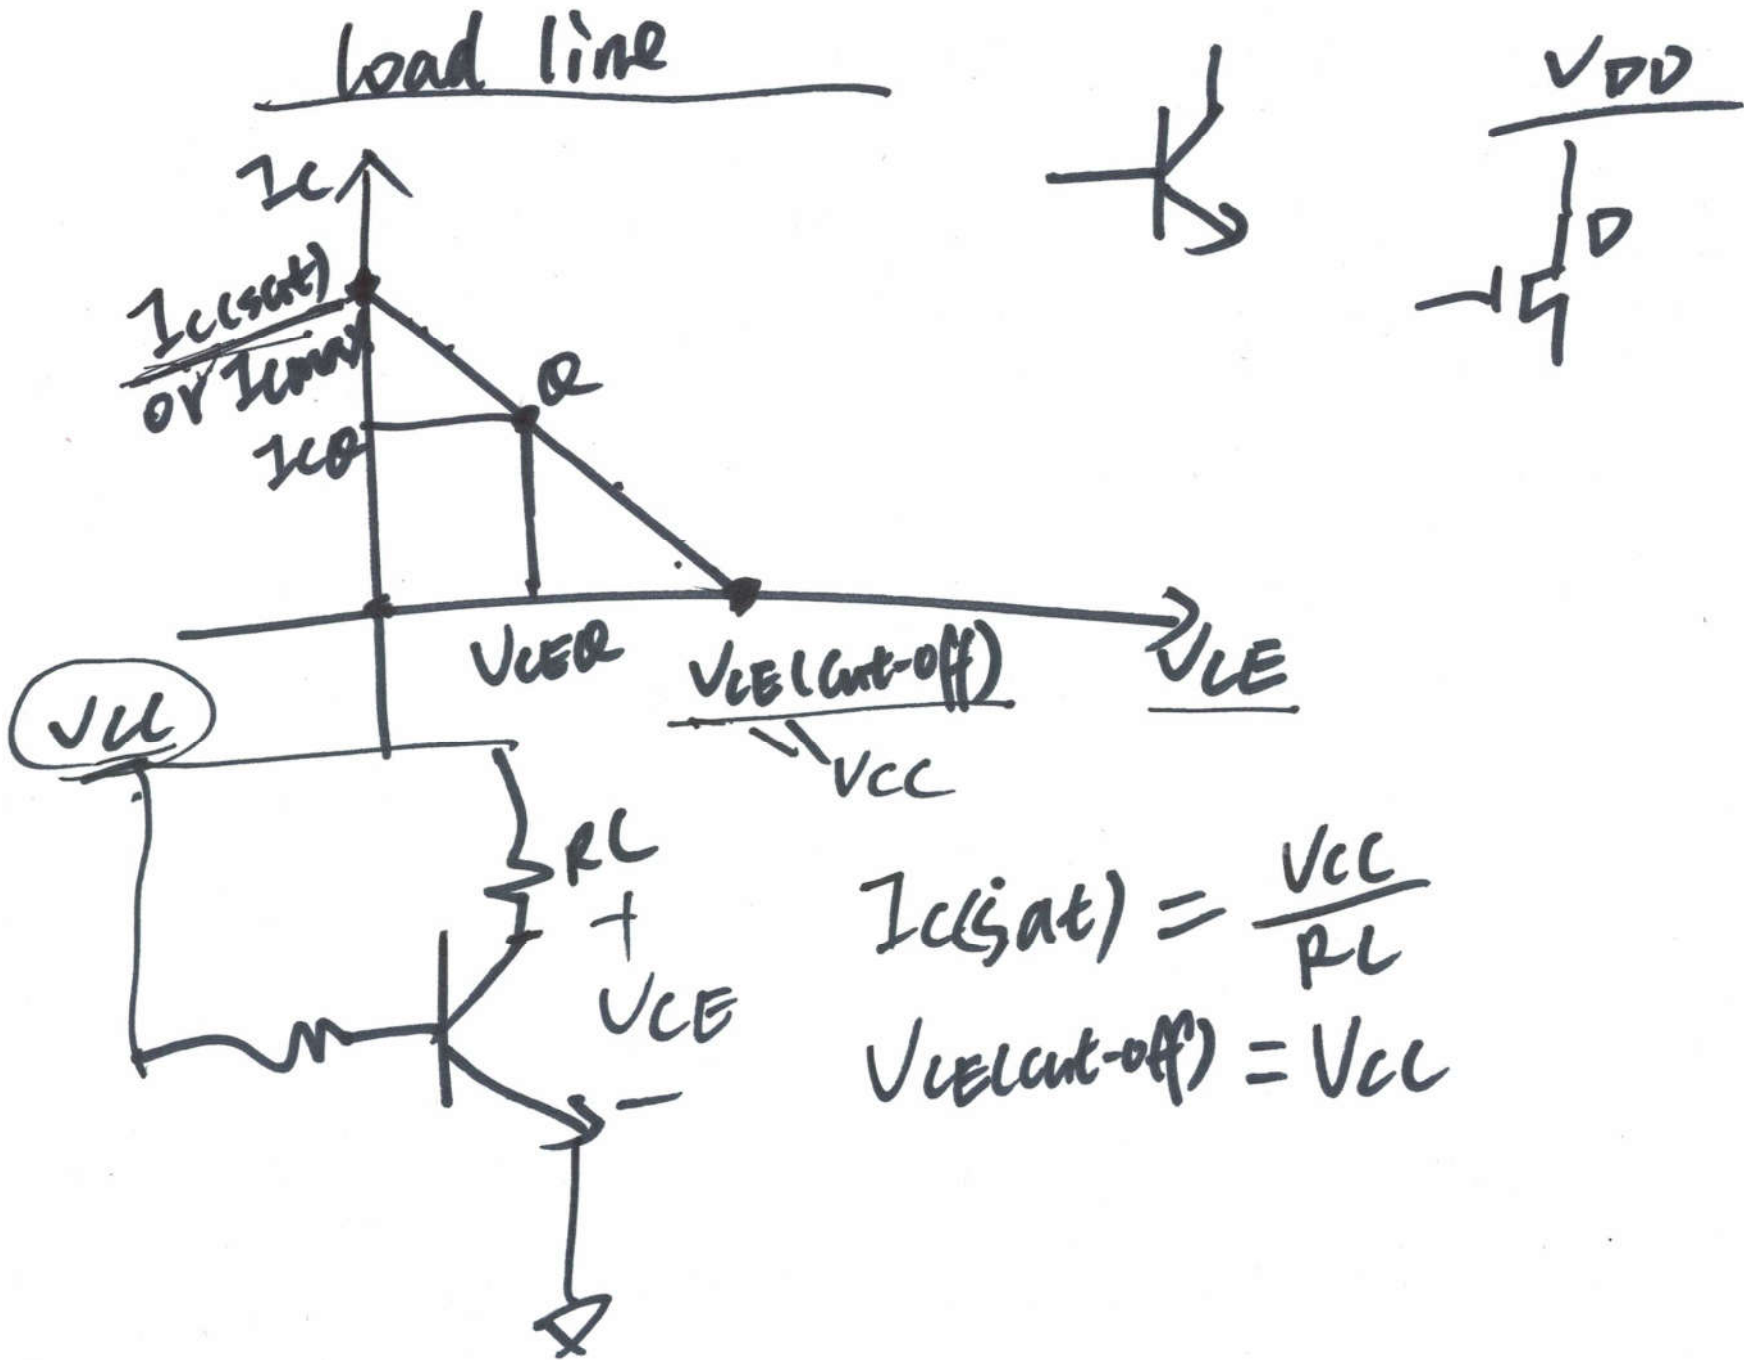 load line
VDD
IC
D
IC(sat)
or ICmax
Q
ICQ
VCEQ
VCE(cut-off)
VCE
VCC
VCC
RC
+
VCE
-
IC(sat) = VCC / RC
VCE(cut-off) = VCC